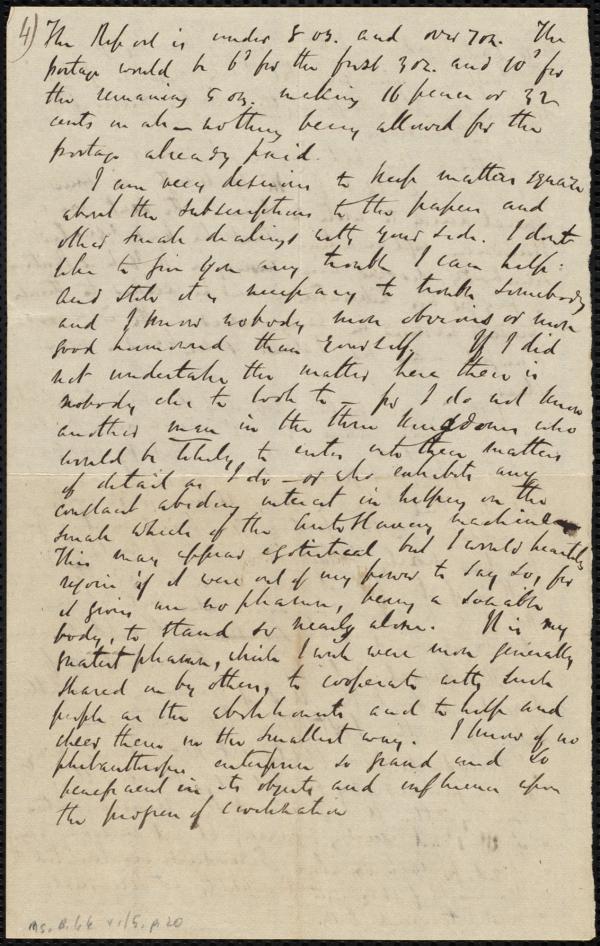 4)
The Report is under 8 oz. and over 7 oz. The
postage would be 6d for the first 3 oz. and 10d for
the remaining 5 oz. making 16 pence or 32
cents in all — nothing being allowed for the
postage already paid.
I am very desirous to keep matters square
about the subscriptions to the papers and
other small dealings with your side. I dont
like to give you any trouble I can help:
and still it is necessary to trouble somebody
and I know nobody more obvious or more
good humoured than yourself. If I did
not undertake the matter here there is
nobody else to look to — for I do not know
another man in the three Kingdoms who
would be likely to enter into these matters
of detail as I do — or who exhibits any
constant abiding interest in helping on the
small wheels of the AntiSlavery machine
This may appear egotistical but I would heartily
rejoice if it were out of my power to say so, for
it gives me no pleasure, being a sociable
body, to stand so nearly alone. It is my
greatest pleasure, which I wish were more generally
shared in by others, to cooperate with such
people as the abolitionists and to help and
cheer them in the smallest way. I know of no
philanthropic enterprise so grand and so
beneficent in its objects and influence upon
the progress of civilization
Ms. B.1.6 v.15, p.20